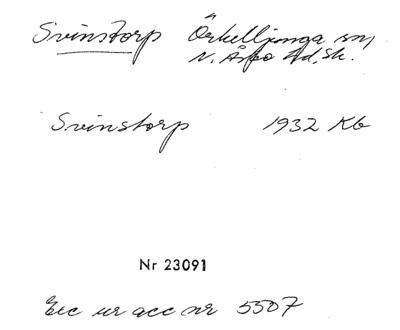 Svinstorp Örkelljunga sn,
N. Åsbo hd, Sk.
Svinstorp 1932 Kb
Nr 23091
Exc ur acc nr 5507